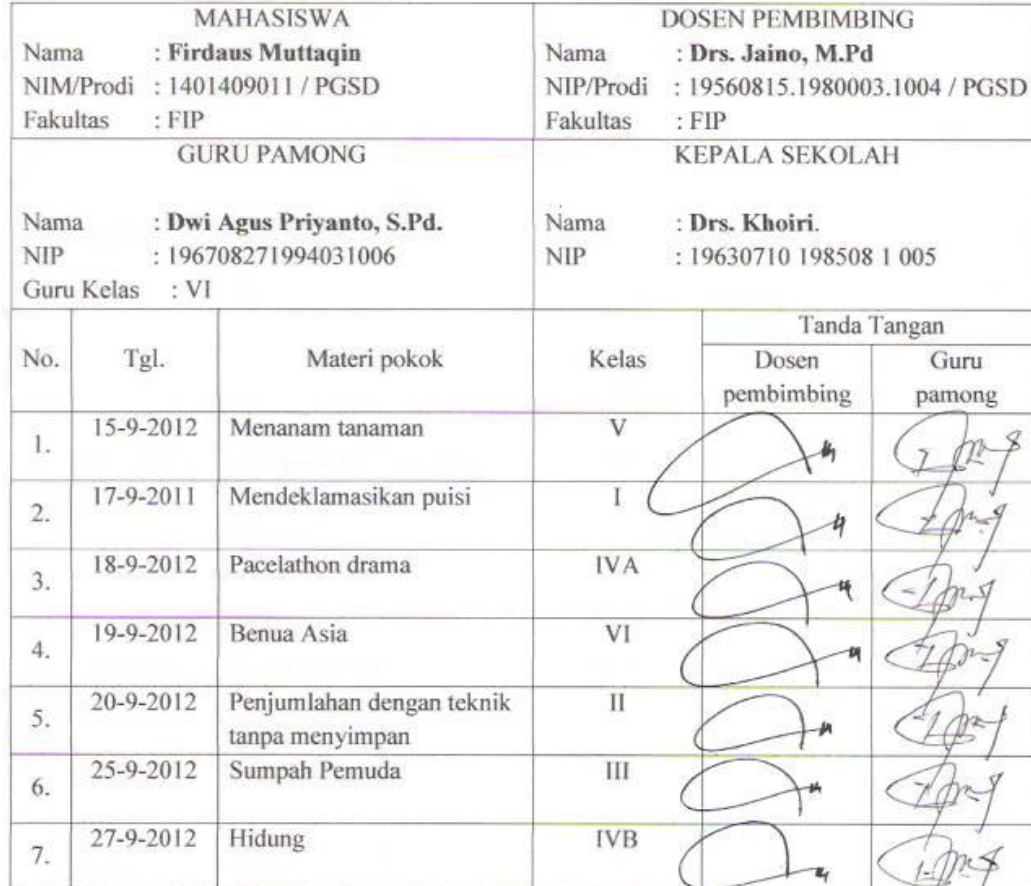 MAHASISWA
Nama : Firdaus Muttaqin
NIM/Prodi : 1401409011 / PGSD
Fakultas : FIP
DOSEN PEMBIMBING
Nama : Drs. Jaino, M.Pd
NIP/Prodi : 19560815.1980003.1004 / PGSD
Fakultas : FIP
GURU PAMONG
Nama : Dwi Agus Priyanto, S.Pd.
NIP : 196708271994031006
Guru Kelas : VI
KEPALA SEKOLAH
Nama : Drs. Khoiri.
NIP : 19630710 198508 1 005
No. Tgl. Materi pokok Kelas Tanda Tangan
Dosen pembimbing Guru pamong
1. 15-9-2012 Menanam tanaman V
2. 17-9-2011 Mendeklamasikan puisi I
3. 18-9-2012 Pacelathon drama IVA
4. 19-9-2012 Benua Asia VI
5. 20-9-2012 Penjumlahan dengan teknik II
tanpa menyimpan
6. 25-9-2012 Sumpah Pemuda III
7. 27-9-2012 Hidung IVB